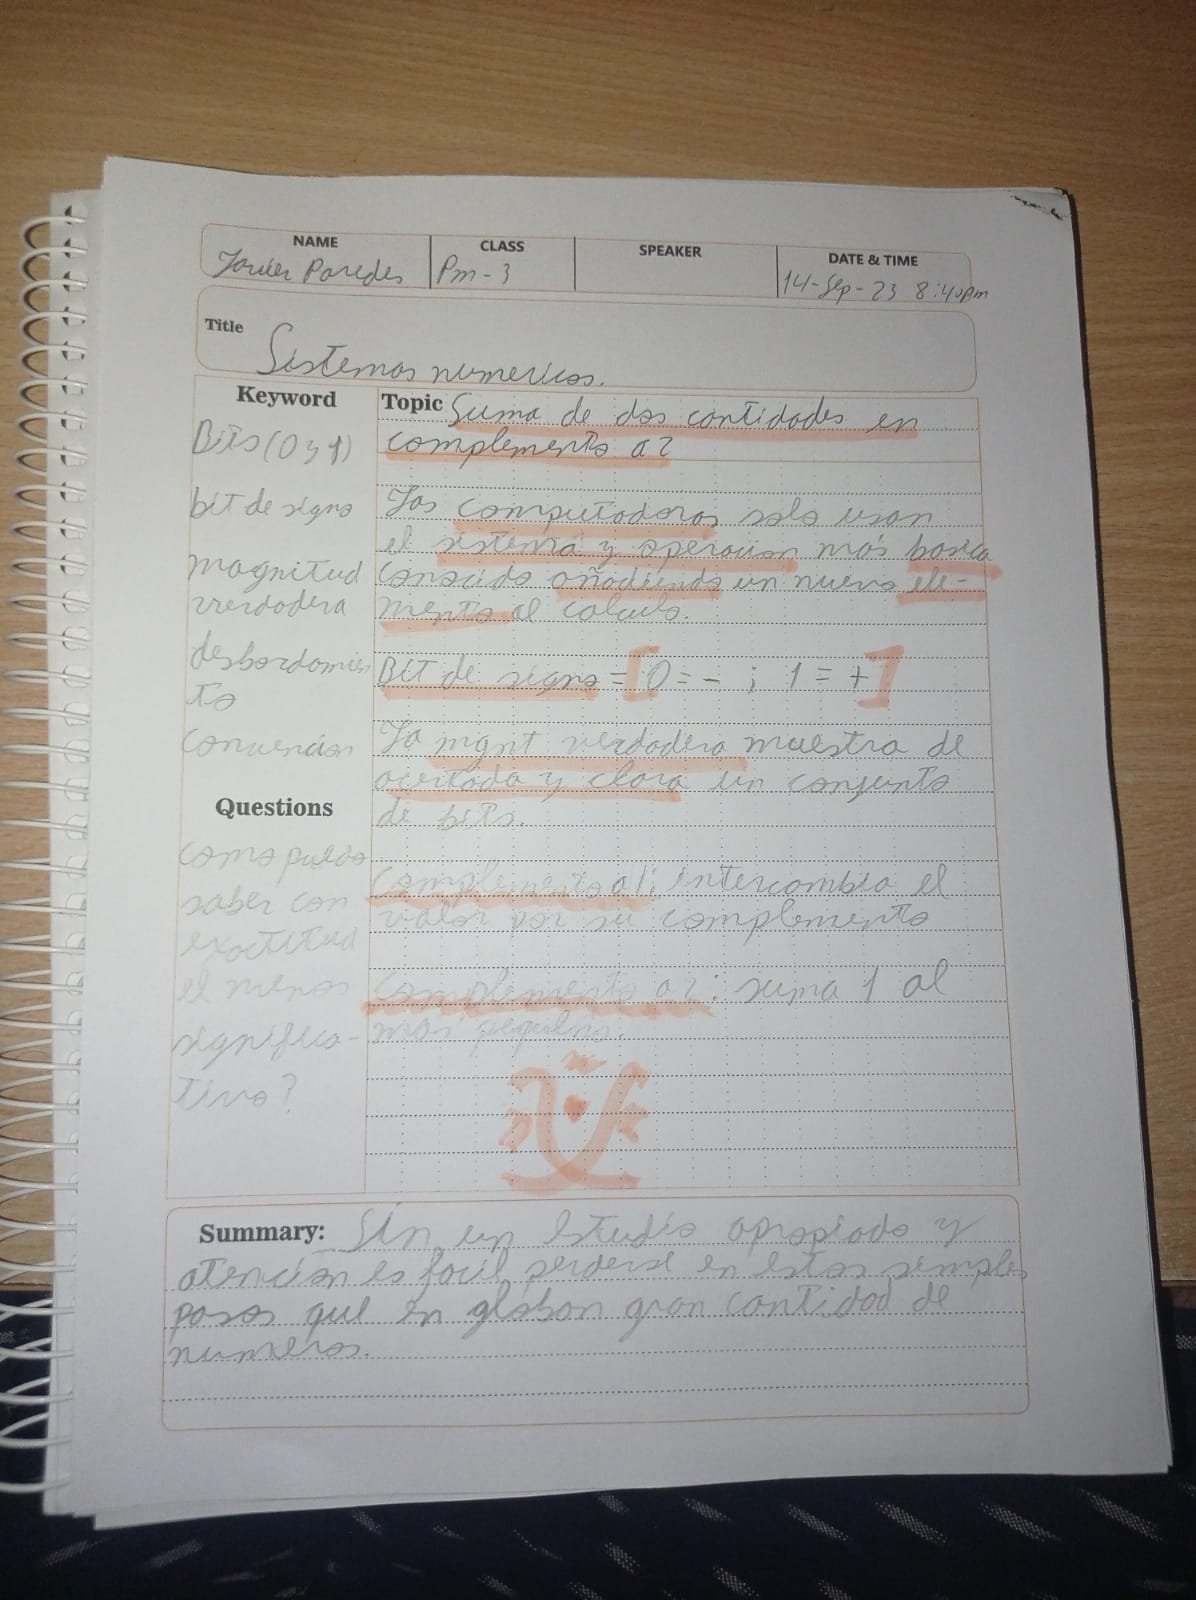 NAME
Javier Paredes
CLASS
Pm - 3
SPEAKER
DATE & TIME
14-Sep-23 8:40pm
Title
Sistemas numericos.
Keyword
Bits (0 y 1)
bit de signo
magnitud
verdadera
desbordamien
to
convención
Questions
como puedo
saber con
exactitud
el menos
significa-
tivo?
Topic Suma de dos cantidades en
complemento a 2
Las computadoras solo usan
el sistema y operacion más basica
conocida añadiendo un nuevo ele-
mento al calculo.
Bit de signo = [0 = - ; 1 = +]
La mgnt verdadera muestra de
acertada y clara un conjunto
de bits.
Complemento a 1: intercambia el
valor por su complemento
Complemento a 2: suma 1 al
mas pequeño.
Summary: Sin un estudio apropiado y
atención es facil perderse en estos simples
pasos que en globan gran cantidad de
numeros.